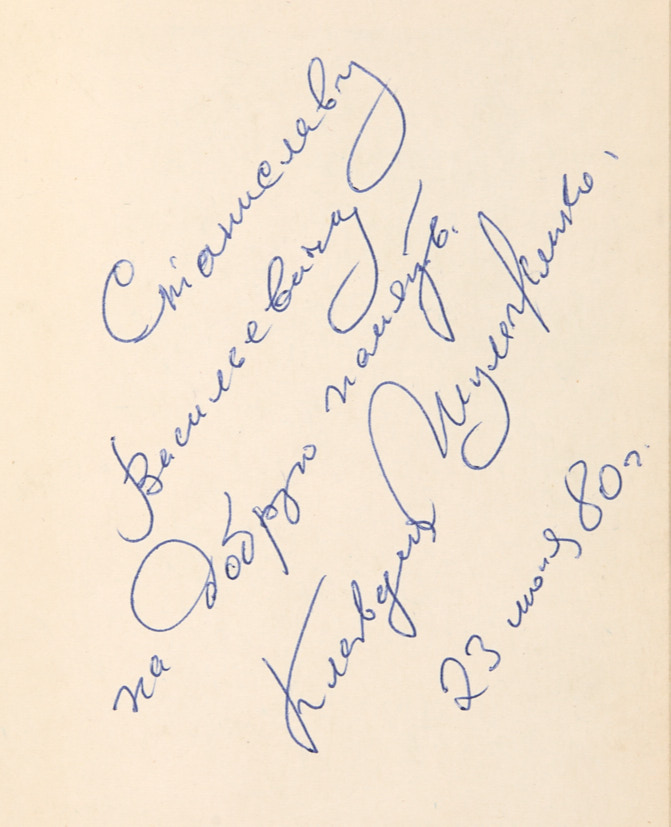 Станиславу
Васильевичу
на добрую память.
Клавдия Шульженко.
23 июня 80 г.